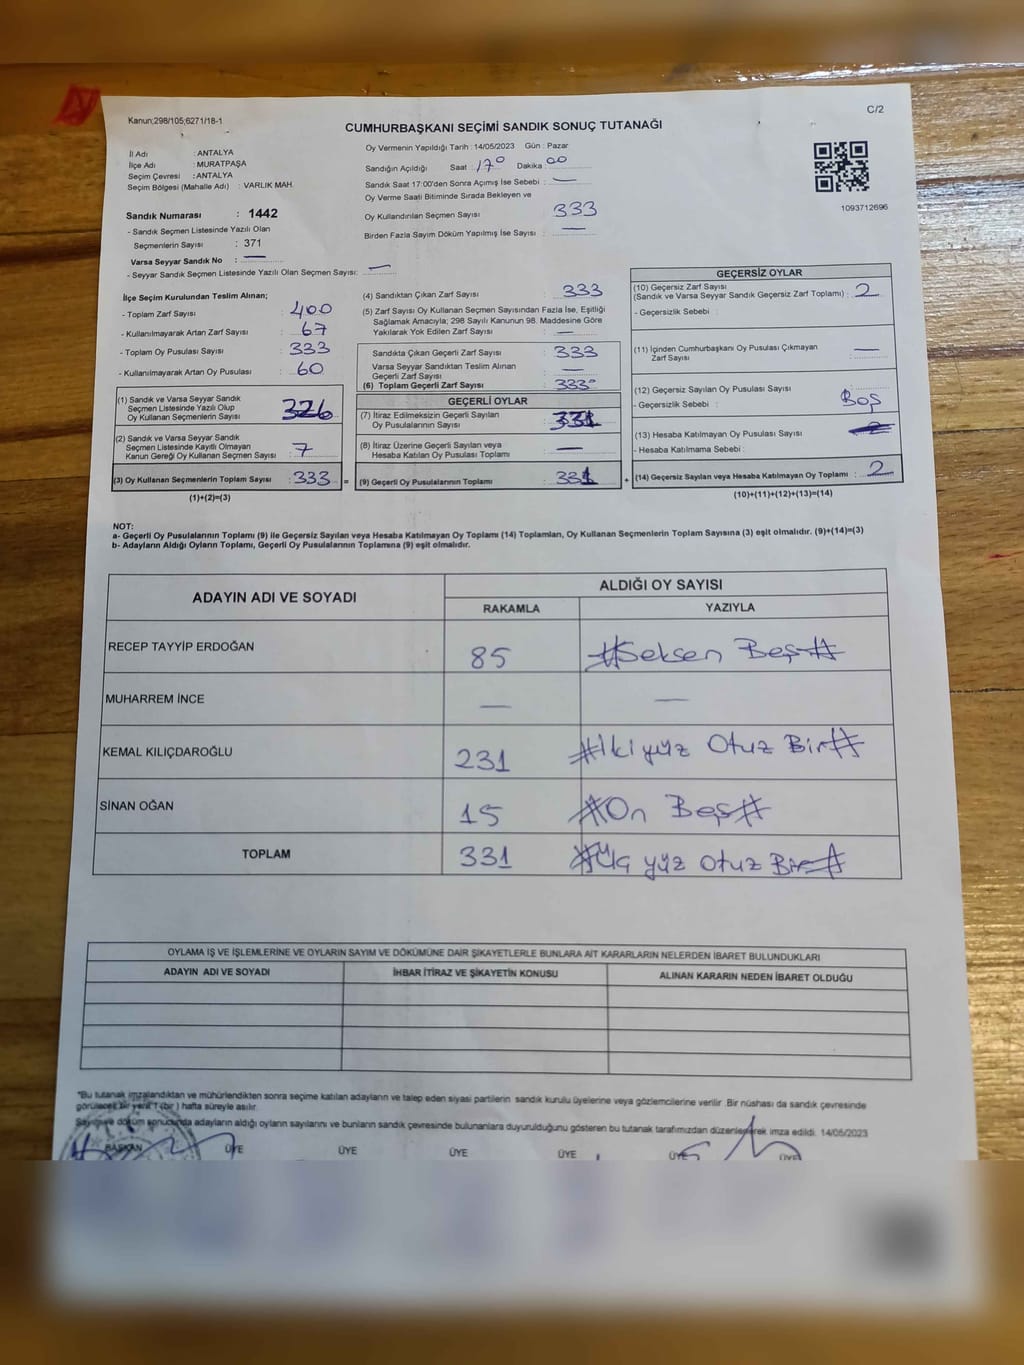 C/2
Kanun;298/105;6271/18-1
CUMHURBAŞKANI SEÇİMİ SANDIK SONUÇ TUTANAĞI
İl Adı : ANTALYA
İlçe Adı : MURATPAŞA
Seçim Çevresi : ANTALYA
Seçim Bölgesi (Mahalle Adı) : VARLIK MAH.
Sandık Numarası : 1442
- Sandık Seçmen Listesinde Yazılı Olan
Seçmenlerin Sayısı : 371
Varsa Seyyar Sandık No : —
- Seyyar Sandık Seçmen Listesinde Yazılı Olan Seçmen Sayısı: —
Oy Vermenin Yapıldığı Tarih : 14/05/2023 Gün : Pazar
Sandığın Açıldığı Saat : 17 Dakika : 00
Sandık Saat 17:00'den Sonra Açımış İse Sebebi : —
Oy Verme Saati Bitiminde Sırada Bekleyen ve
Oy Kullandırılan Seçmen Sayısı : 333
Birden Fazla Sayım Döküm Yapılmış İse Sayısı : —
1093712696
İlçe Seçim Kurulundan Teslim Alınan;
- Toplam Zarf Sayısı : 400
- Kullanılmayarak Artan Zarf Sayısı : 67
- Toplam Oy Pusulası Sayısı : 333
- Kullanılmayarak Artan Oy Pusulası : 60
(1) Sandık ve Varsa Seyyar Sandık
Seçmen Listesinde Yazılı Olup
Oy Kullanan Seçmenlerin Sayısı : 326
(2) Sandık ve Varsa Seyyar Sandık
Seçmen Listesinde Kayıtlı Olmayan
Kanun Gereği Oy Kullanan Seçmen Sayısı : 7
(3) Oy Kullanan Seçmenlerin Toplam Sayısı : 333 =
(1)+(2)=(3)
(4) Sandıktan Çıkan Zarf Sayısı : 333
(5) Zarf Sayısı Oy Kullanan Seçmen Sayısından Fazla İse, Eşitliği
Sağlamak Amacıyla; 298 Sayılı Kanunun 98. Maddesine Göre
Yakılarak Yok Edilen Zarf Sayısı : —
Sandıkta Çıkan Geçerli Zarf Sayısı : 333
Varsa Seyyar Sandıktan Teslim Alınan
Geçerli Zarf Sayısı : —
(6) Toplam Geçerli Zarf Sayısı : 333
GEÇERLİ OYLAR
(7) İtiraz Edilmeksizin Geçerli Sayılan
Oy Pusulalarının Sayısı : 331
(8) İtiraz Üzerine Geçerli Sayılan veya
Hesaba Katılan Oy Pusulası Toplamı : —
(9) Geçerli Oy Pusulalarının Toplamı : 331 +
GEÇERSİZ OYLAR
(10) Geçersiz Zarf Sayısı
(Sandık ve Varsa Seyyar Sandık Geçersiz Zarf Toplamı) : 2
- Geçersizlik Sebebi :
(11) İçinden Cumhurbaşkanı Oy Pusulası Çıkmayan
Zarf Sayısı : —
(12) Geçersiz Sayılan Oy Pusulası Sayısı :
- Geçersizlik Sebebi : Boş
(13) Hesaba Katılmayan Oy Pusulası Sayısı : 2
- Hesaba Katılmama Sebebi :
(14) Geçersiz Sayılan veya Hesaba Katılmayan Oy Toplamı : 2
(10)+(11)+(12)+(13)=(14)
NOT:
a- Geçerli Oy Pusulalarının Toplamı (9) ile Geçersiz Sayılan veya Hesaba Katılmayan Oy Toplamı (14) Toplamları, Oy Kullanan Seçmenlerin Toplam Sayısına (3) eşit olmalıdır. (9)+(14)=(3)
b- Adayların Aldığı Oyların Toplamı, Geçerli Oy Pusulalarının Toplamına (9) eşit olmalıdır.
ADAYIN ADI VE SOYADI
ALDIĞI OY SAYISI
RAKAMLA YAZIYLA
RECEP TAYYİP ERDOĞAN 85 #Seksen Beş#
MUHARREM İNCE — —
KEMAL KILIÇDAROĞLU 231 #İki yüz Otuz Bir#
SİNAN OĞAN 15 #On Beş#
TOPLAM 331 #Üç yüz Otuz Bir#
OYLAMA İŞ VE İŞLEMLERİNE VE OYLARIN SAYIM VE DÖKÜMÜNE DAİR ŞİKAYETLERLE BUNLARA AİT KARARLARIN NELERDEN İBARET BULUNDUKLARI
ADAYIN ADI VE SOYADI İHBAR İTİRAZ VE ŞİKAYETİN KONUSU ALINAN KARARIN NEDEN İBARET OLDUĞU
"Bu tutanak imzalandıktan ve mühürlendikten sonra seçime katılan adayların ve talep eden siyasi partilerin sandık kurulu üyelerine veya gözlemcilerine verilir. Bir nüshası da sandık çevresinde
görülecek bir yere 1 (bir) hafta süreyle asılır.
Sayım ve döküm sonucunda adayların aldığı oyların sayılarını ve bunların sandık çevresinde bulunanlara duyurulduğunu gösteren bu tutanak tarafımızdan düzenlenerek imza edildi. 14/05/2023
BAŞKAN ÜYE ÜYE ÜYE ÜYE ÜYE ÜYE